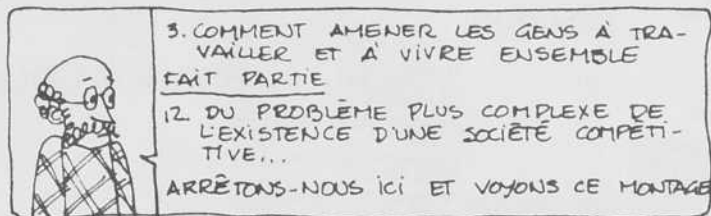 3. COMMENT AMENER LES GENS À TRA-
VAILLER ET À VIVRE ENSEMBLE
FAIT PARTIE
12. DU PROBLÈME PLUS COMPLEXE DE
L'EXISTENCE D'UNE SOCIÉTÉ COMPÉTI-
TIVE...
ARRÊTONS-NOUS ICI ET VOYONS CE MONTAGE